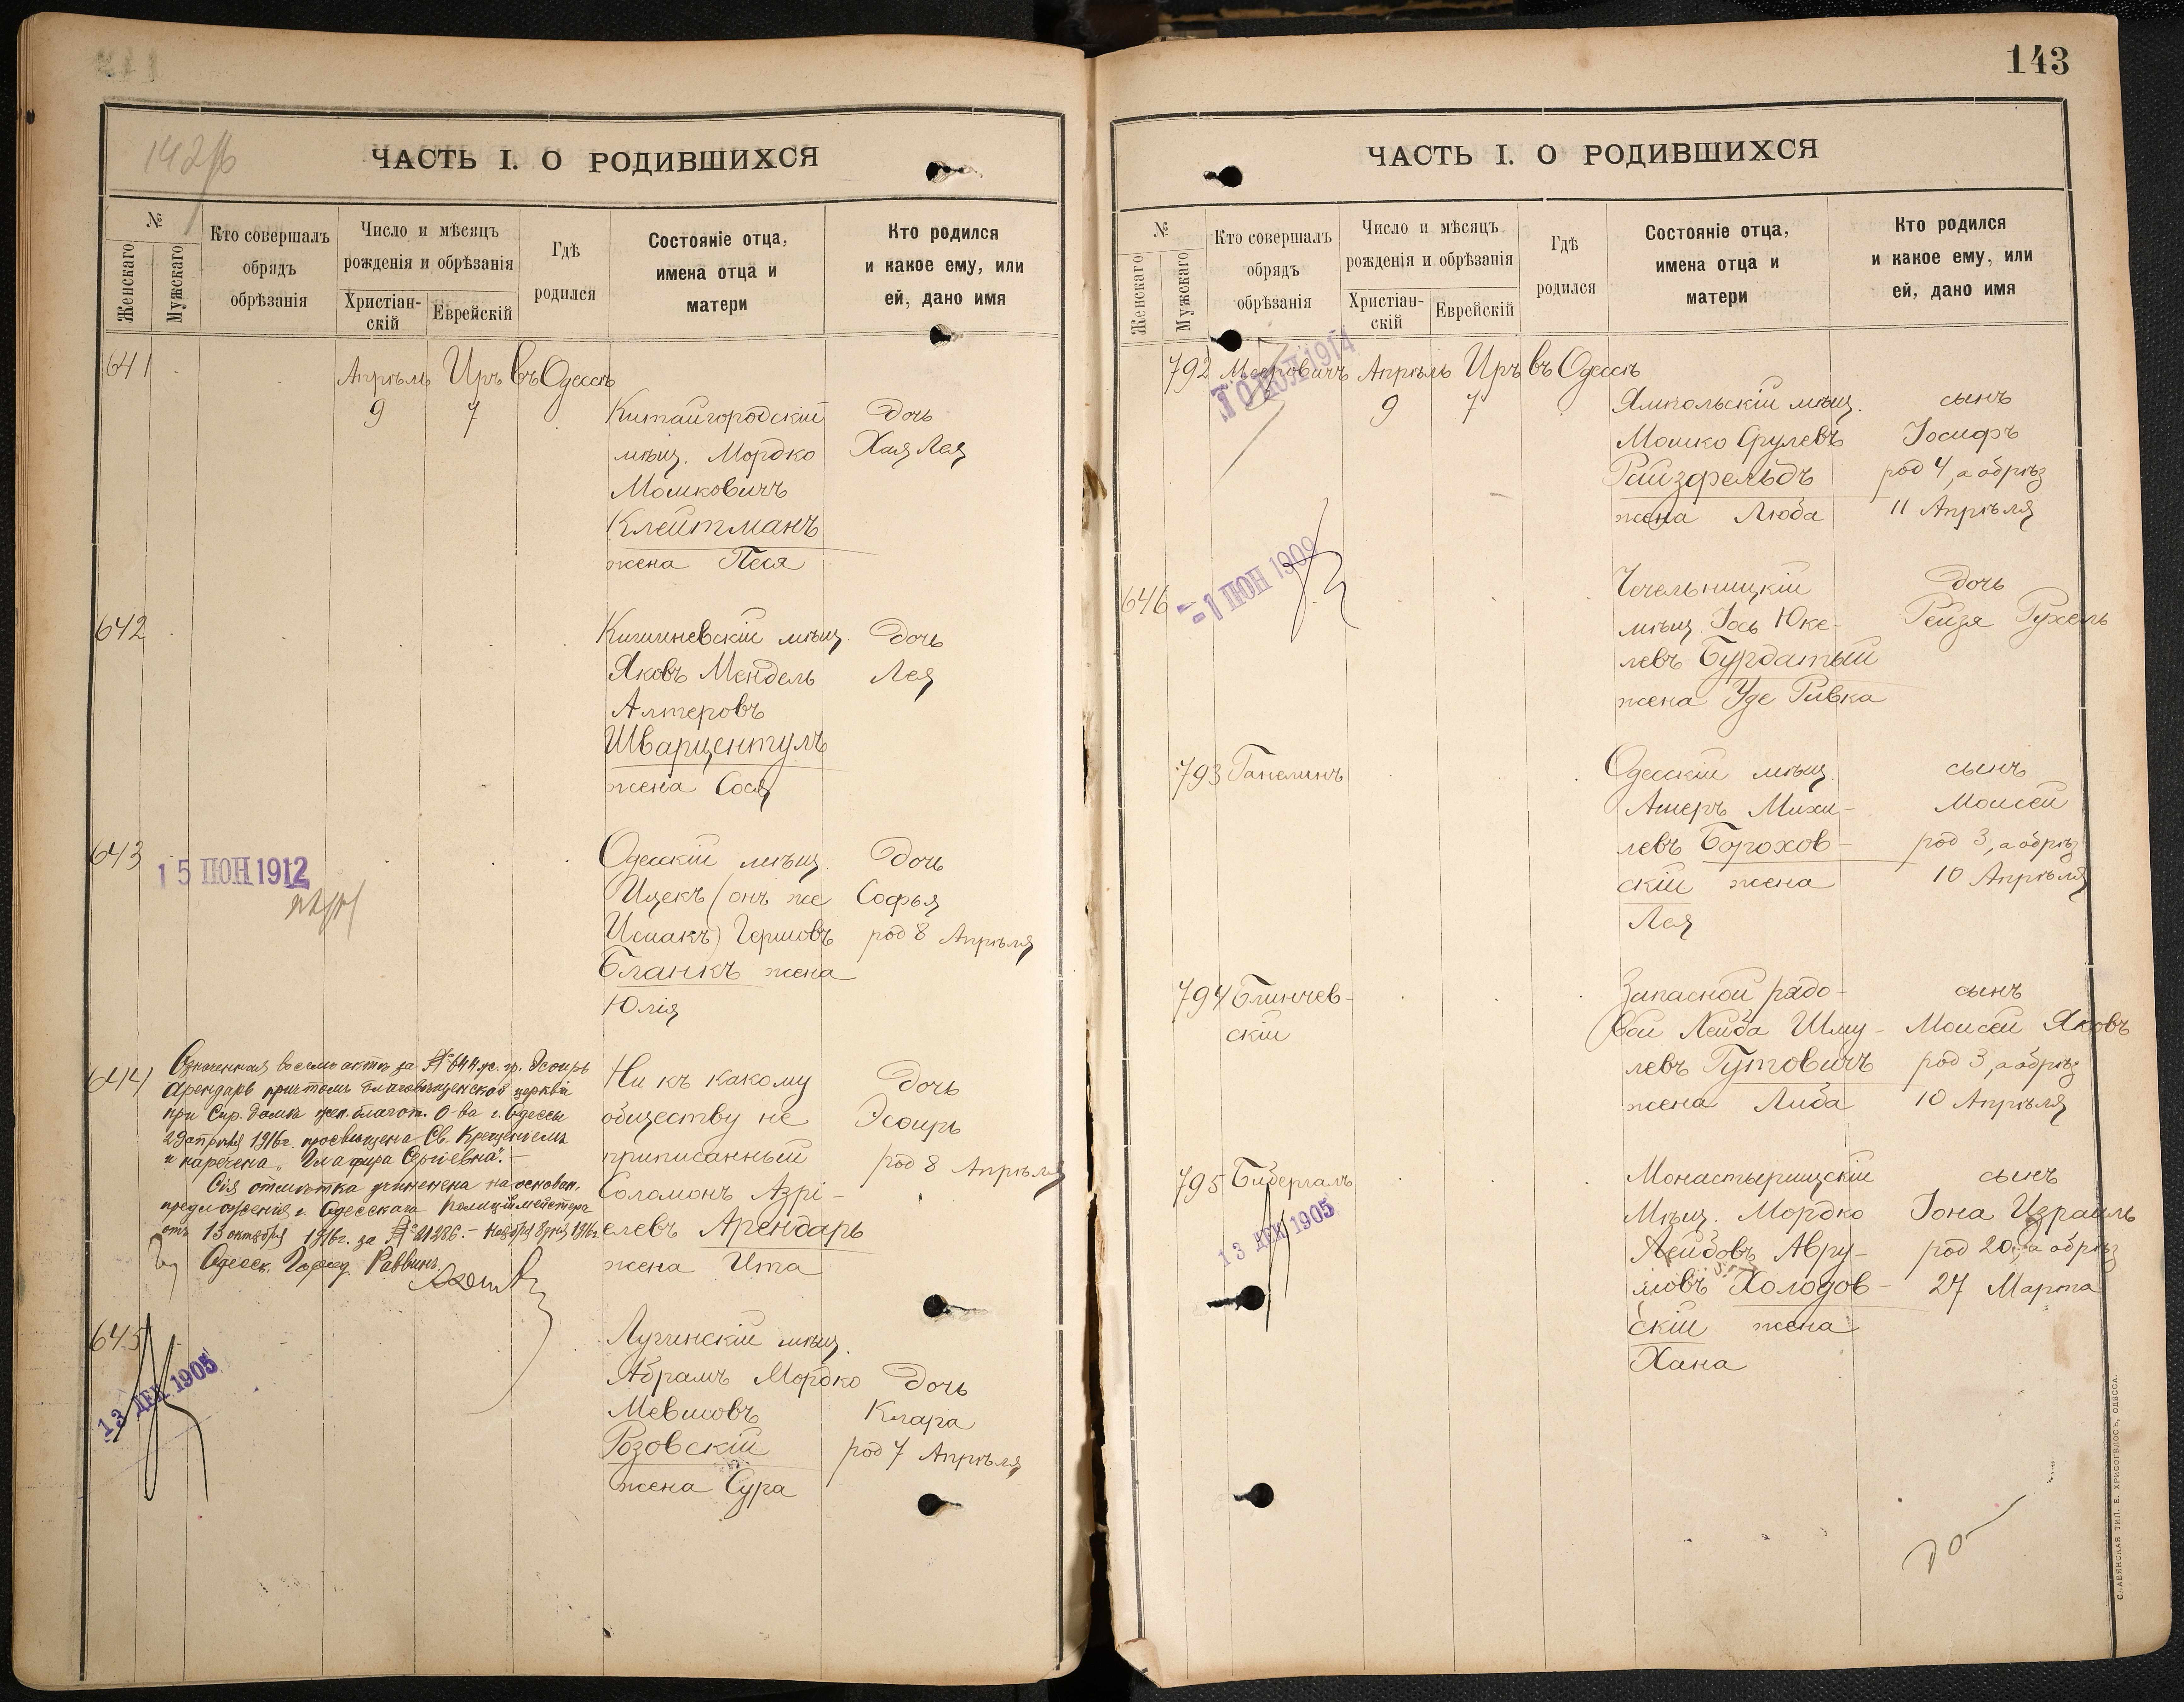 142/б
ЧАСТЬ I. О РОДИВШИХСЯ
№
Женскаго
Мужскаго
Кто совершалъ
обрядъ
обрѣзанія
Число и мѣсяцъ
рожденія и обрѣзанія
Христіан-
скій
Еврейскій
Гдѣ
родился
Состояніе отца,
имена отца и
матери
Кто родился
и какое ему, или
ей, дано имя
641 Апрѣль Иръ въ Одессѣ
9 7 Китайгородскій дочь
мѣщ. Мордко Хая Лея
Мошковичъ
Клейтманъ
жена Песя
642 Кишиневскій мѣщ. дочь
Яковъ Мендель Лея
Алтеровъ
Шварцентулъ
жена Сося
643 Одесскій мѣщ. дочь
15 ІЮН 1912
Ицекъ (онъ же Софья
Исаакъ) Гершовъ род 8 Апрѣля
Бланкъ жена
Юлія
644 Ни къ какому дочь
обществу не Эсѳирь
приписанный род 8 Апрѣля
Соломонъ Азрі-
елевъ Арендарь
жена Ита
Означенная въ семъ актѣ за № 644 ж. гр. Эсѳирь
Арендарь причтомъ Благовѣщенской церкви
при Сир. домѣ жен. благот. О-ва г. Одессы
29 апрѣля 1916г. просвѣщена Св. Крещеніемъ
и наречена "Глафира Сергіевна". -
Сія отмѣтка учинена на основан.
предложенія г. Одесскаго Полиціймейстера
отъ 13 октября 1916г. за № 21286. - Ноября 3 дня 1916г.
Одесск. Город. Раввинъ
645 Лугинскій мѣщ.
13 ДЕК 1905
Абрамъ Мордко дочь
Мевшовъ Клара
Розовскій род 7 Апрѣля
жена Сура
143
ЧАСТЬ I. О РОДИВШИХСЯ
№
Женскаго
Мужскаго
Кто совершалъ
обрядъ
обрѣзанія
Число и мѣсяцъ
рожденія и обрѣзанія
Христіан-
скій
Еврейскій
Гдѣ
родился
Состояніе отца,
имена отца и
матери
Кто родился
и какое ему, или
ей, дано имя
792 Мееровичъ Апрѣль Иръ въ Одессѣ
1914
9 7 Ямпольскій мѣщ. сынъ
Мошко Срулевъ Іосифъ
Райзфельдъ род 4, а обрѣз
жена Люба 11 Апрѣля
646 Чечельницкій дочь
-1 ІЮН 1909
мѣщ. Іось Юке- Рейзя Рухель
левъ Бурдатый
жена Уде Ривка
793 Ганелинъ Одесскій мѣщ. сынъ
Ашеръ Михи- Моисей
левъ Борохов- род 3, а обрѣз
скій жена 10 Апрѣля
Лея
794 Блинчев- Запасной рядо- сынъ
скій вой Лейба Шму- Моисей Яковъ
левъ Гутовичъ род 3, а обрѣз
жена Либа 10 Апрѣля
795 Бибергалъ Монастырищскій сынъ
13 ДЕК 1905
Мѣщ. Мордко Іона Израиль
Лейбовъ Авру- род 20, а обрѣз
мовъ Холодов- 27 Марта
скій жена
Хана
СЛАВЯНСКАЯ ТИП. Е. ХРИСОГЕЛОСЪ, ОДЕССА.